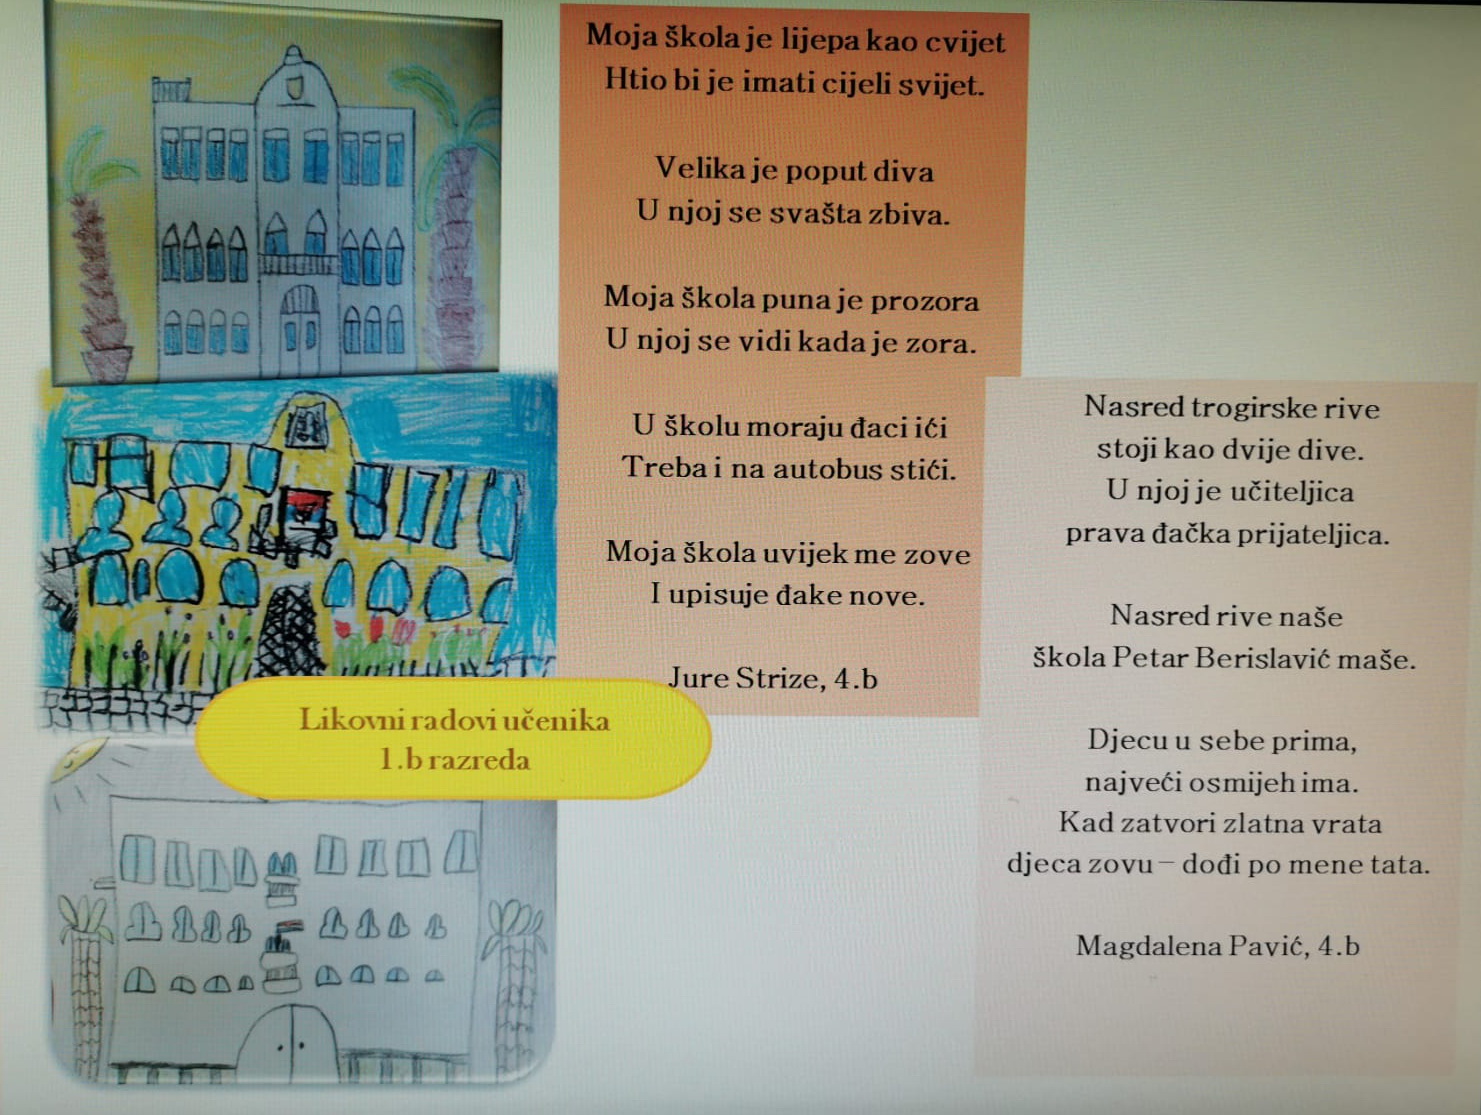 Moja škola je lijepa kao cvijet
Htio bi je imati cijeli svijet.
Velika je poput diva
U njoj se svašta zbiva.
Moja škola puna je prozora
U njoj se vidi kada je zora.
U školu moraju đaci ići
Treba i na autobus stići.
Moja škola uvijek me zove
I upisuje đake nove.
Jure Strize, 4.b
Nasred trogirske rive
stoji kao dvije dive.
U njoj je učiteljica
prava đačka prijateljica.
Nasred rive naše
škola Petar Berislavić maše.
Djecu u sebe prima,
najveći osmijeh ima.
Kad zatvori zlatna vrata
djeca zovu – dođi po mene tata.
Magdalena Pavić, 4.b
Likovni radovi učenika
1.b razreda